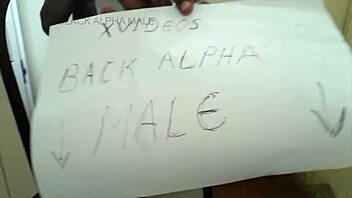 BLACK ALPHA MALE
XVIDEOS
BACK ALPHA
MALE